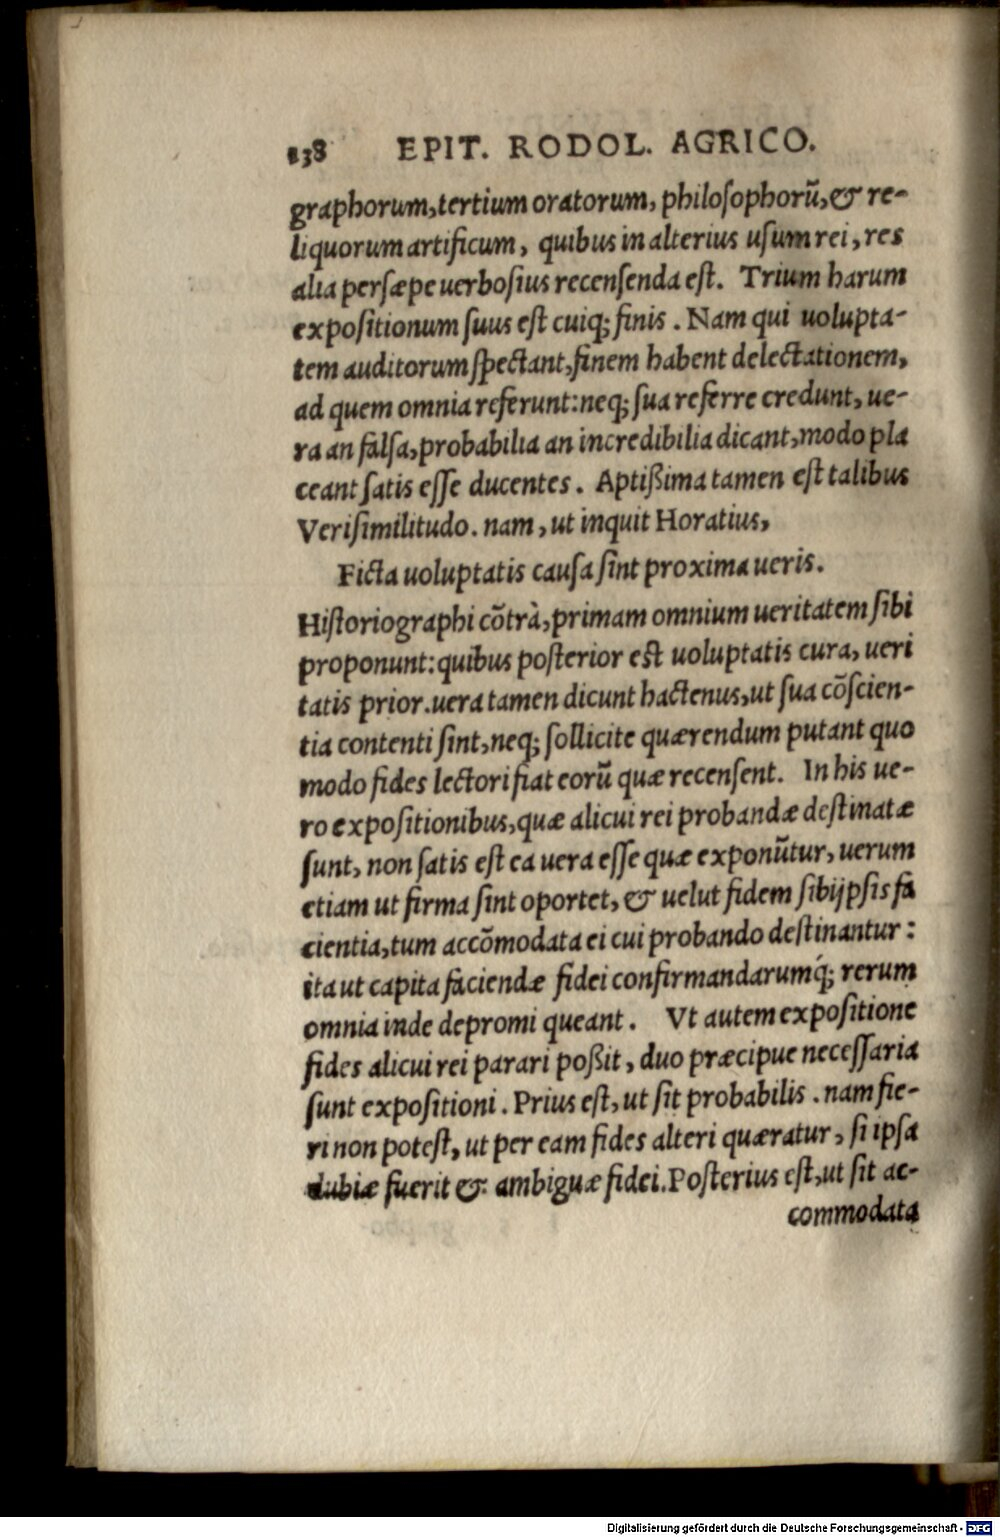 138 EPIT. RODOL. AGRICO.
graphorum, tertium oratorum, philoſophorũ, & re-
liquorum artificum, quibus in alterius uſum rei, res
alia perſæpe uerboſius recenſenda eſt. Trium harum
expoſitionum ſuus eſt cuiq; finis. Nam qui uolupta-
tem auditorum ſpectant, finem habent delectationem,
ad quem omnia referunt: neq; ſua referre credunt, ue-
ra an falſa, probabilia an incredibilia dicant, modo pla
ceant ſatis eſſe ducentes. Aptißima tamen eſt talibus
Veriſimilitudo. nam, ut inquit Horatius,
Ficta uoluptatis cauſa ſint proxima ueris.
Hiſtoriographi cõtrà, primam omnium ueritatem ſibi
proponunt: quibus poſterior eſt uoluptatis cura, ueri
tatis prior. uera tamen dicunt hactenus, ut ſua cõſcien-
tia contenti ſint, neq; ſollicite quærendum putant quo
modo fides lectori fiat eorũ quæ recenſent. In his ue-
ro expoſitionibus, quæ alicui rei probandæ deſtinatæ
ſunt, non ſatis eſt ea uera eſſe quæ exponũtur, uerum
etiam ut firma ſint oportet, & uelut fidem ſibijpſis fa
cientia, tum accõmodata ei cui probando deſtinantur:
ita ut capita faciendæ fidei confirmandarumq́; rerum
omnia inde depromi queant. Vt autem expoſitione
fides alicui rei parari poßit, duo præcipue neceſſaria
ſunt expoſitioni. Prius eſt, ut ſit probabilis. nam fie-
ri non poteſt, ut per eam fides alteri quæratur, ſi ipſa
dubiæ fuerit & ambiguæ fidei. Poſterius eſt, ut ſit ac-
commodata
Digitalisierung gefördert durch die Deutsche Forschungsgemeinschaft - DFG